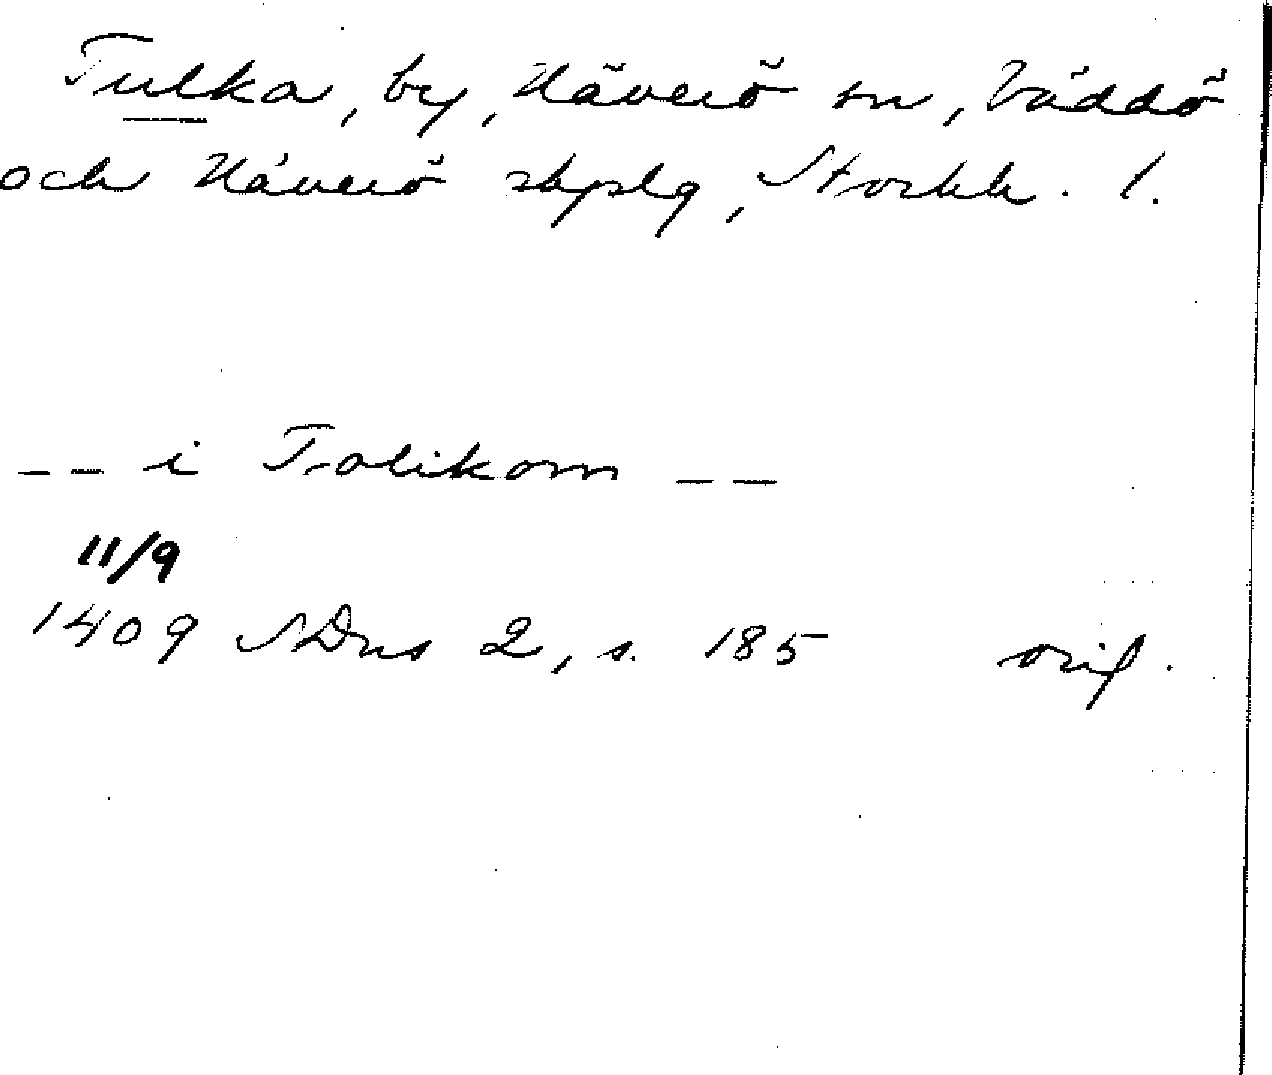 Tulka, by, Häverö sn, Väddö
och Häverö skpslg, Stockh. l.
-- i Tolikom --
11/9
1409 SDns 2, s. 185 orig.